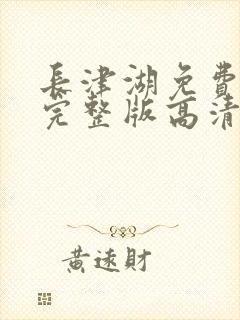 長津湖免費
完整版高清
黃遠財